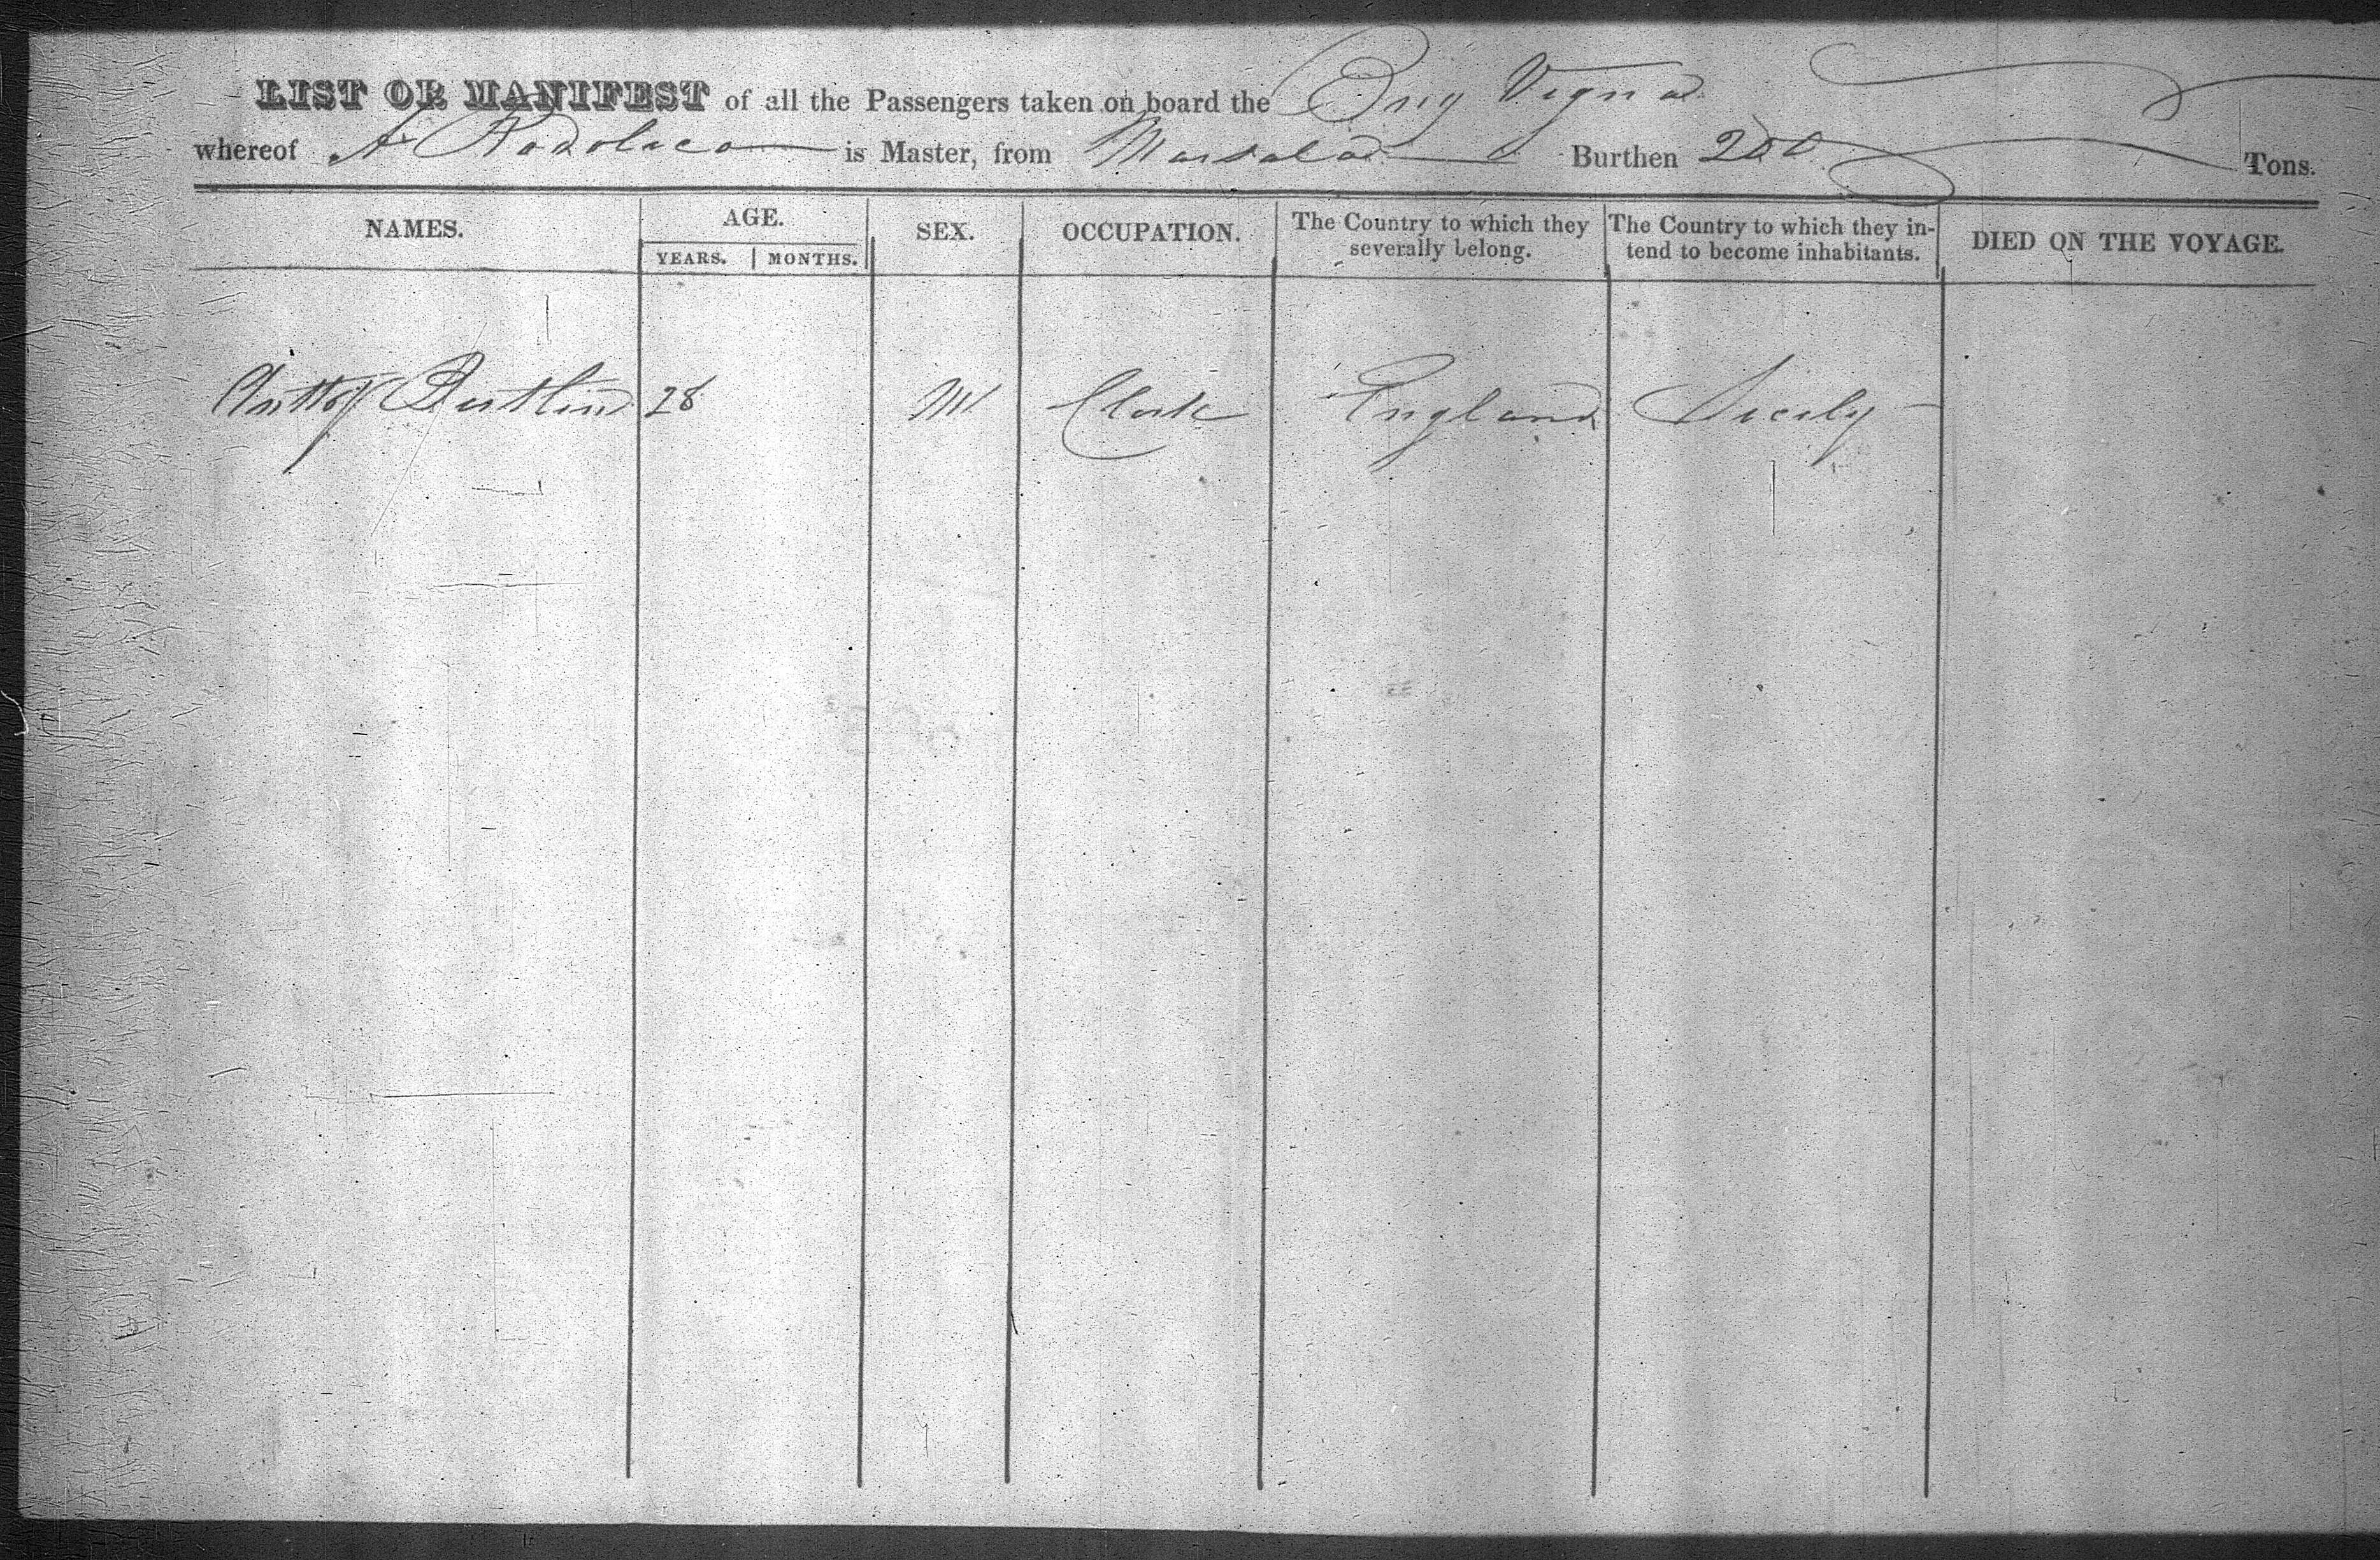 LIST OR MANIFEST of all the Passengers taken on board the Brig Vigna
whereof A Rodolico is Master, from Marsala Burthen 200 Tons.
NAMES. AGE. SEX. OCCUPATION. The Country to which they severally belong. The Country to which they in-tend to become inhabitants. DIED ON THE VOYAGE.
YEARS. MONTHS.
28 M Clerk England Sicily